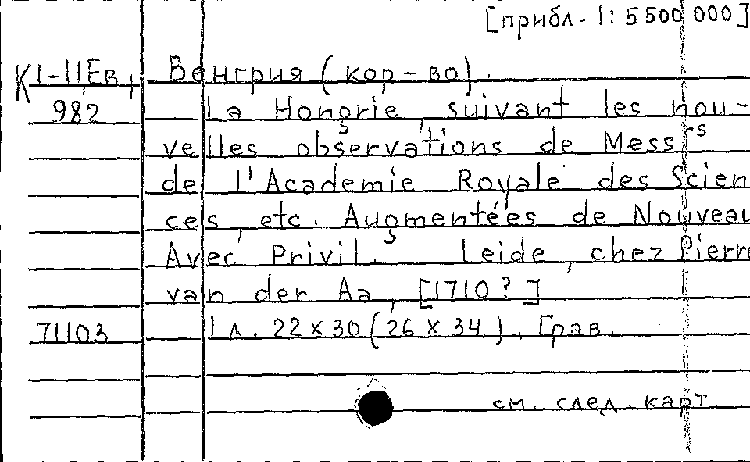 [прибл. 1: 5 500 000]
К1-11Ев, Венгрия (кор-во).
982 La Hongrie, suivant les nou-
velles observations de Messrs
de l'Academie Royale des Scien
ces, etc. Augmentées de Nouveau
Avec Privil. Leide, chez Pierre
van der Aa, [1710?]
71103 1 л. 22 x 30 (26 x 34). Грав.
см. след. карт